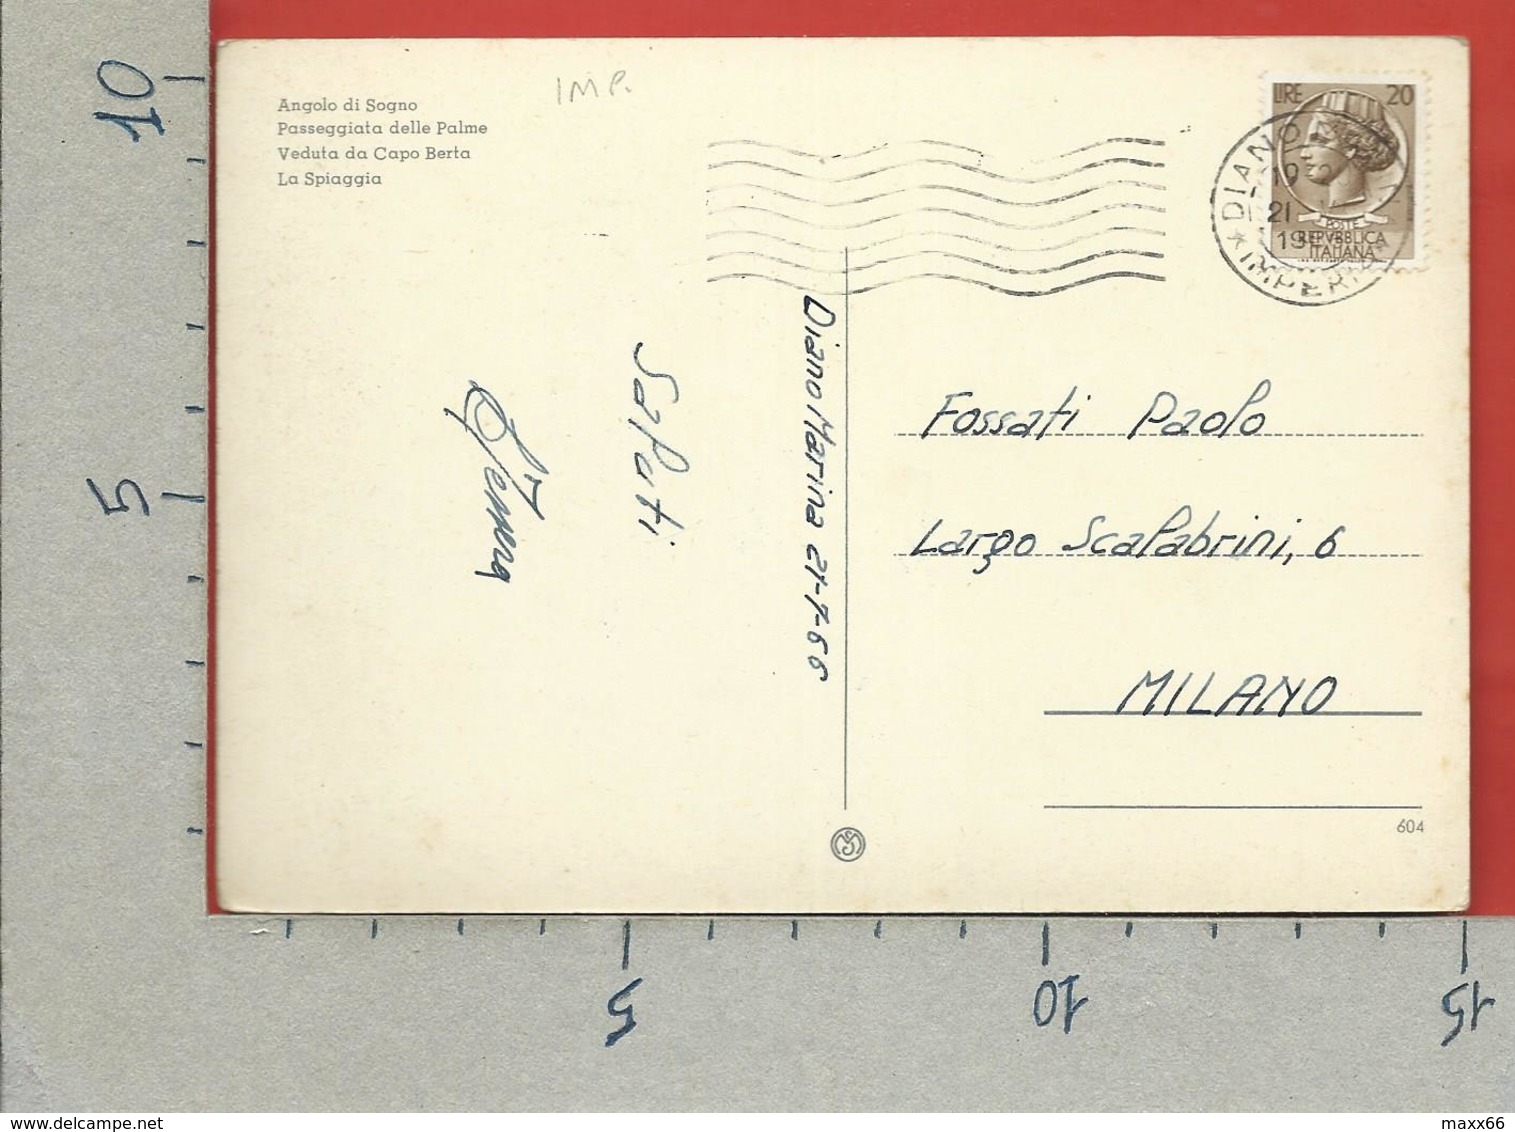 10
5
Angolo di Sogno
Passeggiata delle Palme
Veduta da Capo Berta
La Spiaggia
IMP.
LIRE 20
POSTE
REPVBBLICA
ITALIANA
DIANO
19
21
19
IMPERIA
Diano Marina 21-7-66
Saluti
Fossati Paolo
Largo Scalabrini, 6
MILANO
604
5
10
15
maxx66